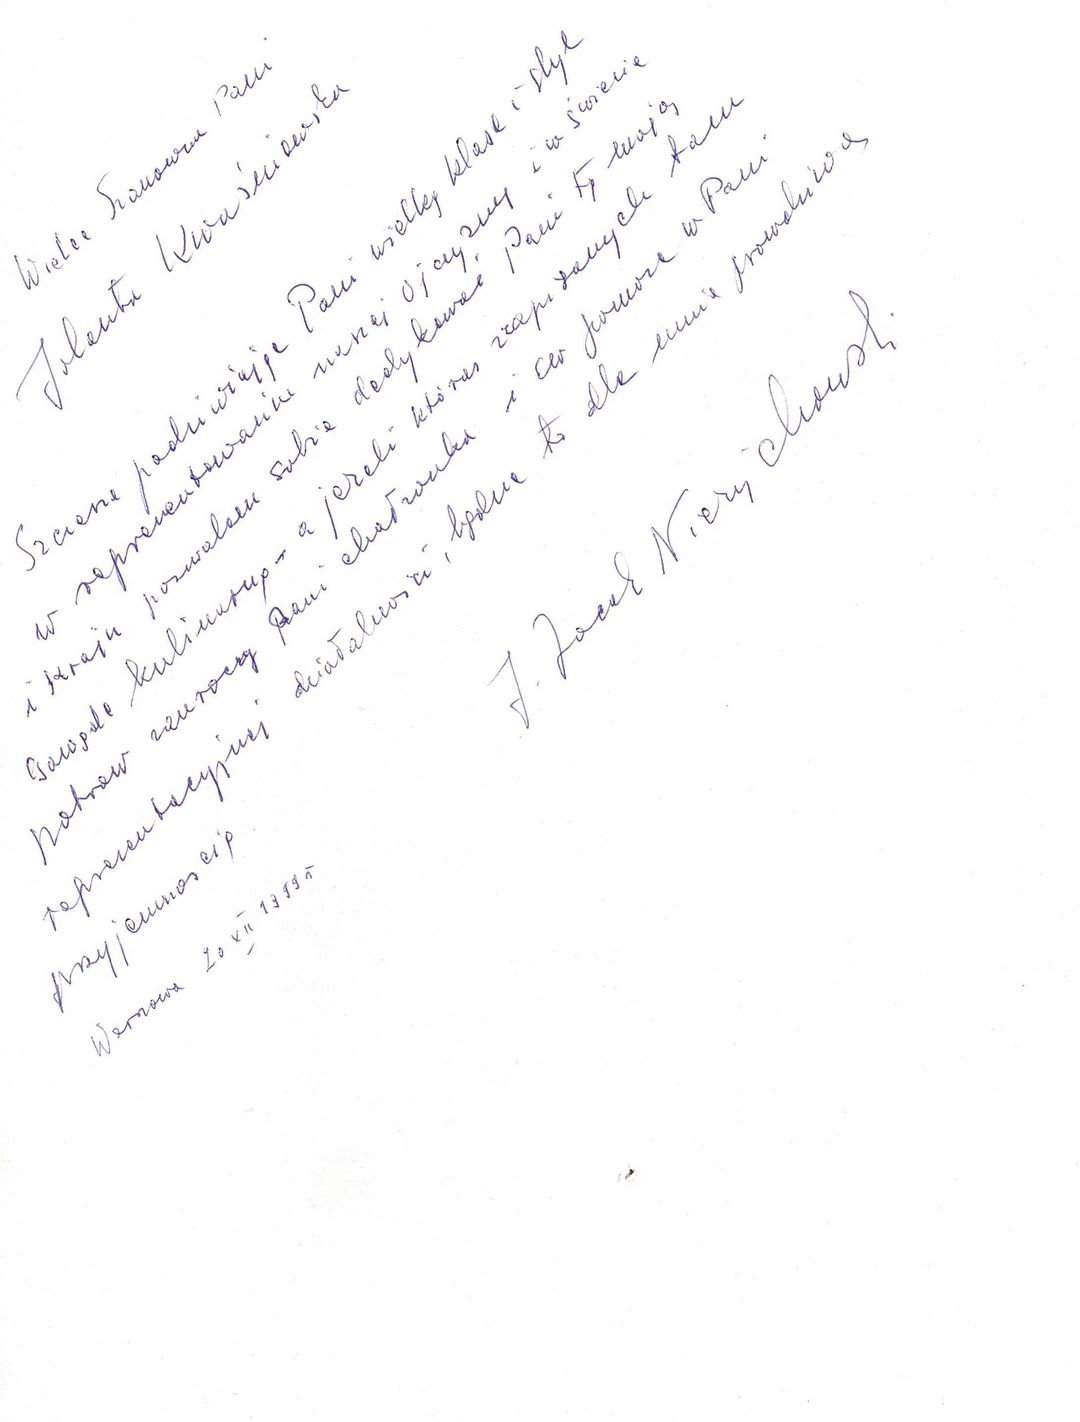 Wielce Szanowna Pani
Jolanta Kwaśniewska
Szczerze podziwiając Pani wielką klasę i styl
w reprezentowaniu naszej Ojczyzny i w świecie
i kraju pozwalam sobie dedykować Pani tę moją
Gawędę kulinarną - a jeżeli któraś z zapisanych tam
potraw zauroczy Pani małżonka i coś pomoże w Pani
reprezentacyjnej działalności, będzie to dla mnie prawdziwą
przyjemnością.
J. Jacek Nieżychowski
Warszawa 20 XII 1999 r